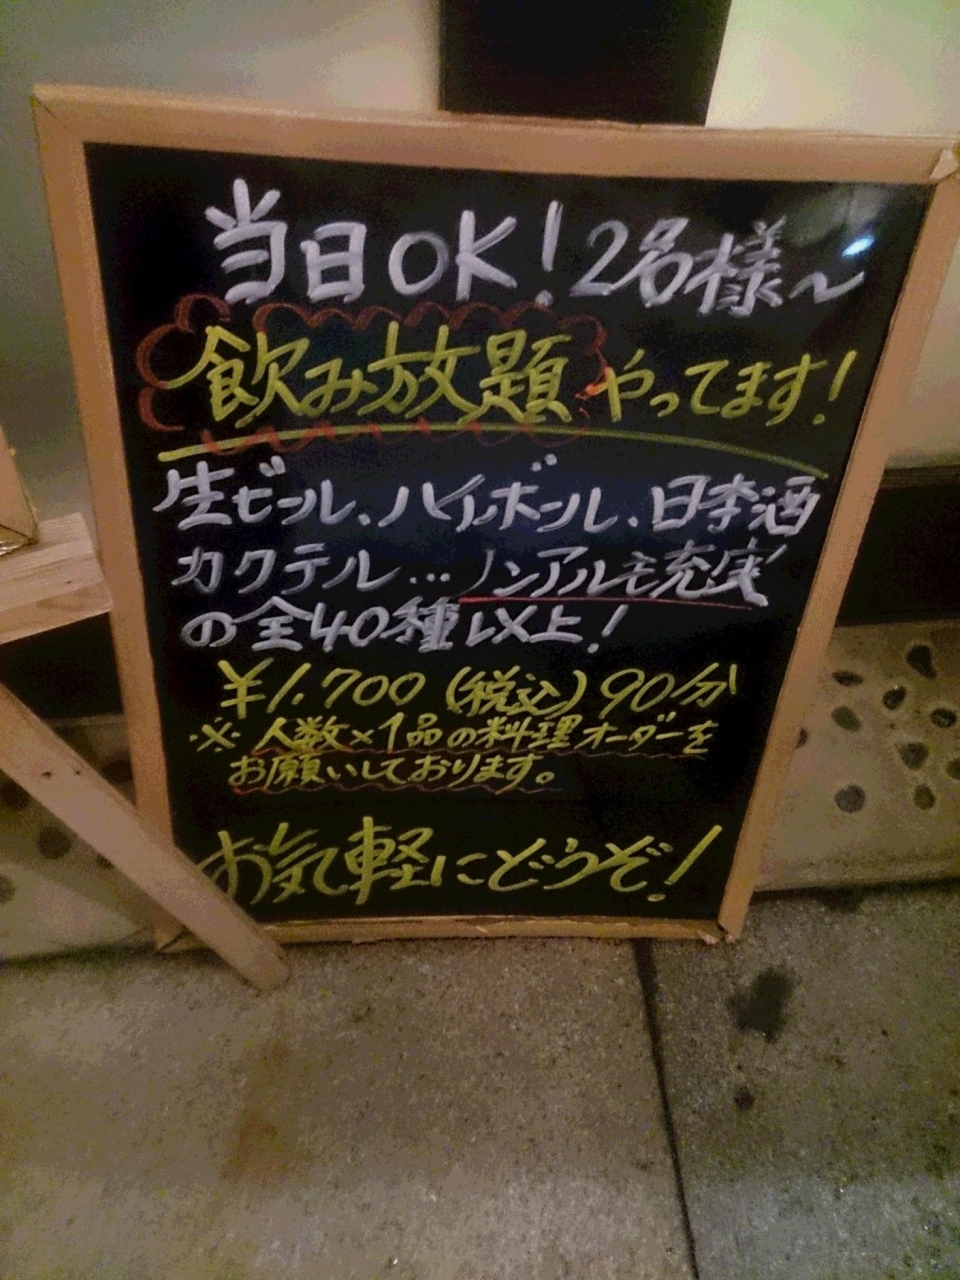 当日OK!2名様~
飲み放題やってます!
生ビール、ハイボール、日本酒
カクテル…ノンアルも充実
の全40種以上!
¥1.700(税込)90分
※人数×1品の料理オーダーを
お願いしております。
お気軽にどうぞ!